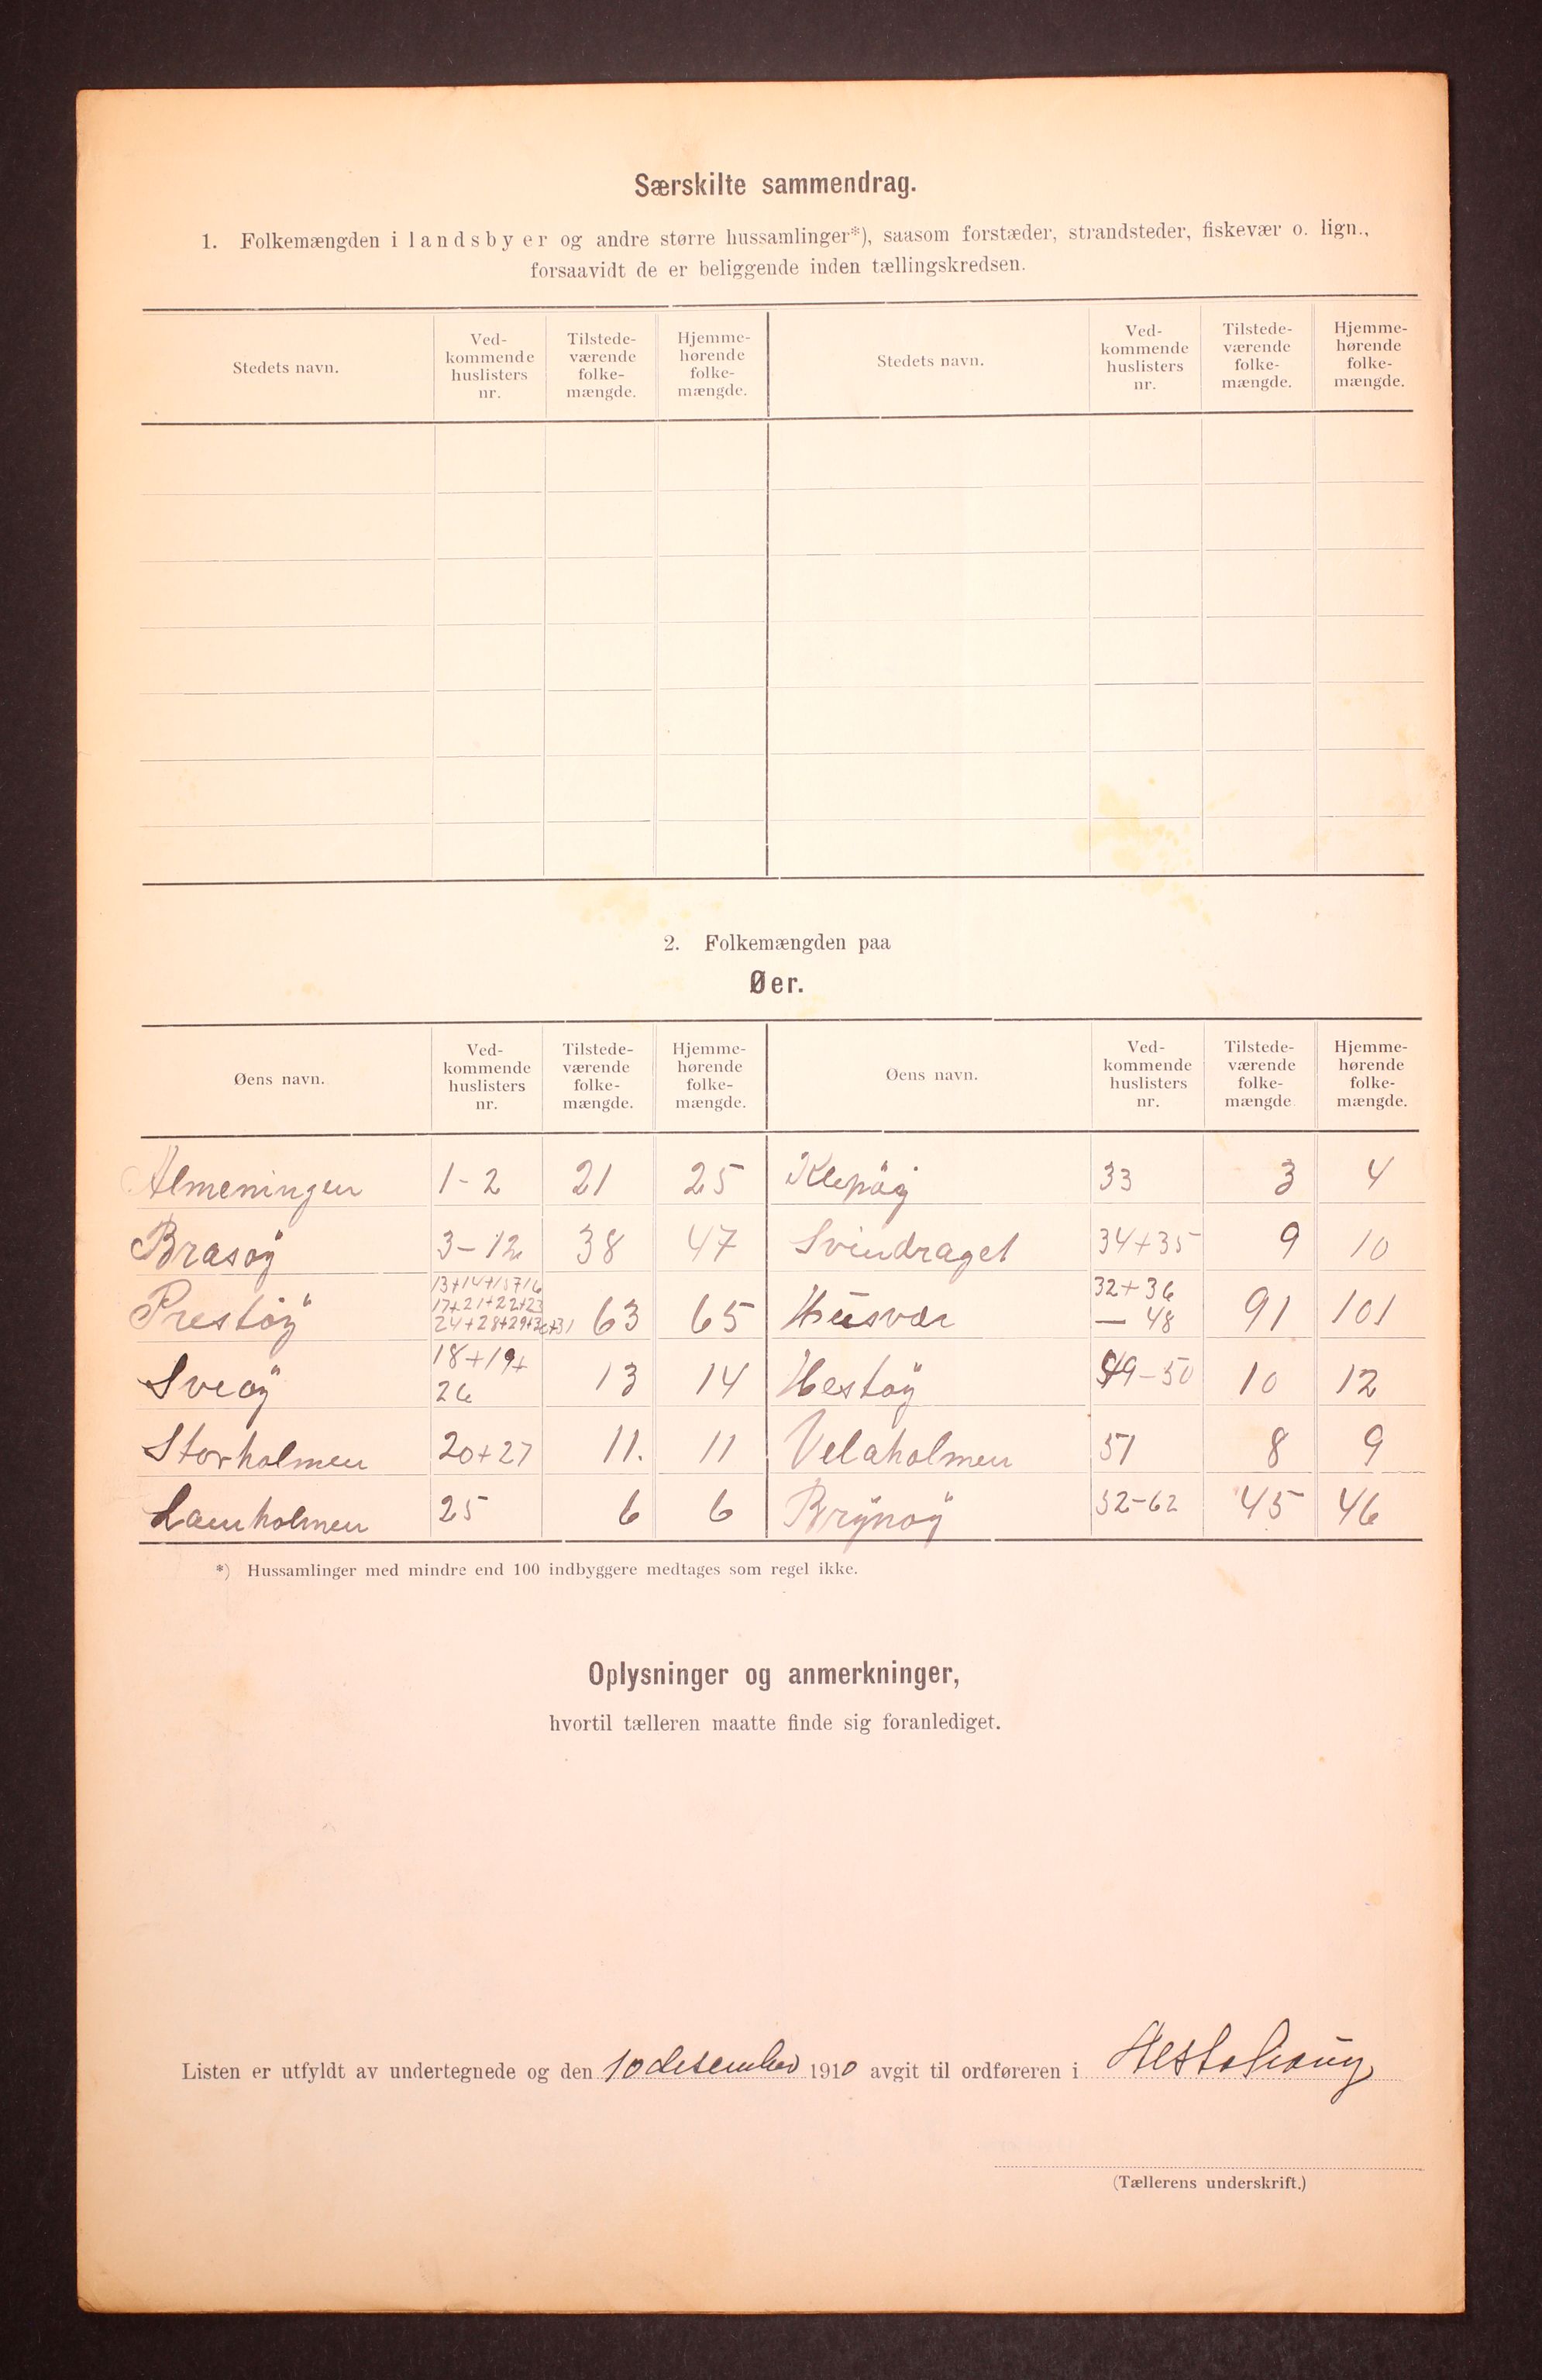 Særskilte sammendrag.
1. Folkemængden i landsbyer og andre større hussamlinger*), saasom forstæder, strandsteder, fiskevær o. lign.,
forsaavidt de er beliggende inden tællingskredsen.
Stedets navn. Ved-kommende huslisters nr. Tilstede-værende folke-mængde. Hjemme-hørende folke-mængde. Stedets navn. Ved-kommende huslisters nr. Tilstede-værende folke-mængde. Hjemme-hørende folke-mængde.
2. Folkemængden paa
Øer.
Øens navn. Ved-kommende huslisters nr. Tilstede-værende folke-mængde. Hjemme-hørende folke-mængde. Øens navn. Ved-kommende huslisters nr. Tilstede-værende folke-mængde Hjemme-hørende folke-mængde.
Almeningen 1-2 21 25 Klepöy 33 3 4
Brasöy 3-12 38 47 Svindraget 34+35 9 10
Prestöy 13+14+15+16 17+21+22+23 24+28+29+30+31 63 65 Husvær 32+36 — 48 91 101
Sveöy 18+19+ 26 13 14 Hestöy 49-50 10 12
Storholmen 20+27 11. 11 Velaholmen 51 8 9
Lamholmen 25 6 6 Brynöy 52-62 45 46
*) Hussamlinger med mindre end 100 indbyggere medtages som regel ikke.
Oplysninger og anmerkninger,
hvortil tælleren maatte finde sig foranlediget.
Listen er utfyldt av undertegnede og den 10 desember 1910 avgit til ordføreren i
(Tællerens underskrift.)